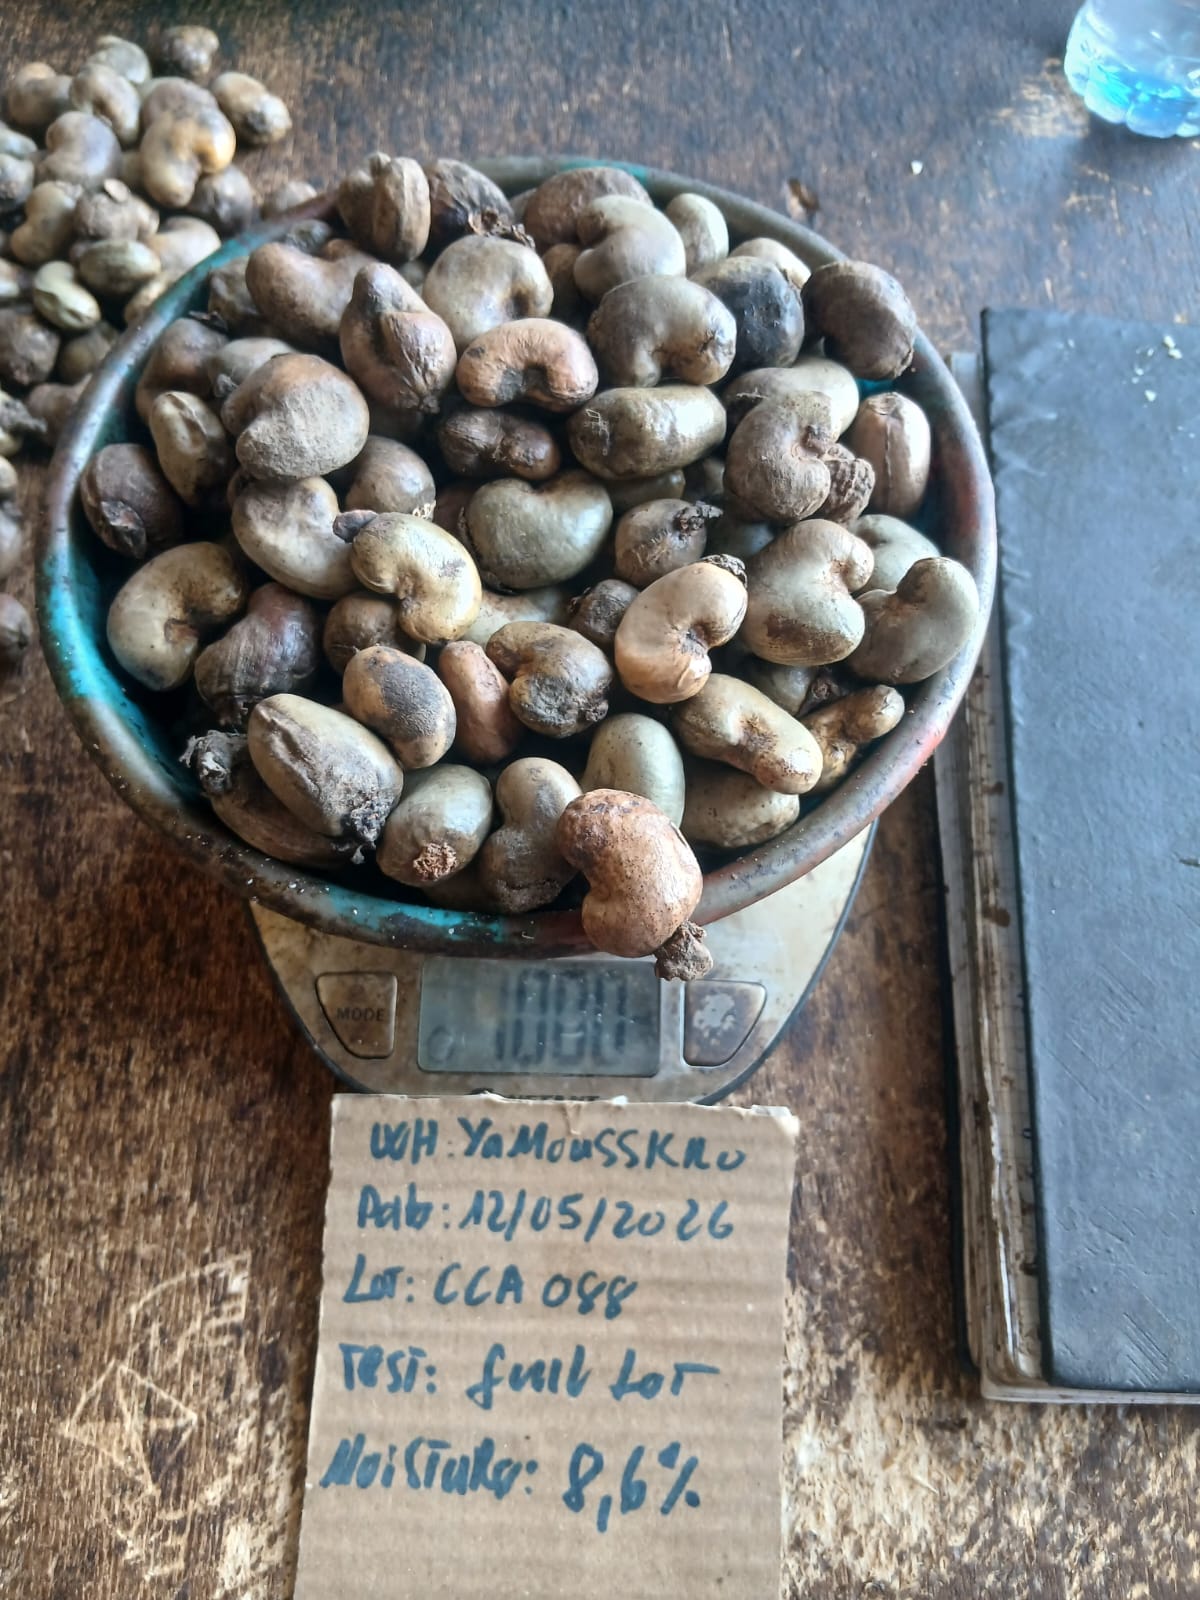 MODE
1000
WH: YaMoussKRo
Date: 12/05/2026
Lot: CCA 088
Test: full Lot
Moisture: 8,6%